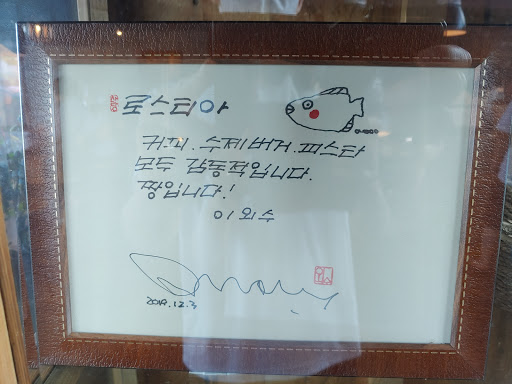 로스티아
커피. 수제버거. 파스타
모두 감동적입니다.
짱입니다!
이외수
2019.12.3